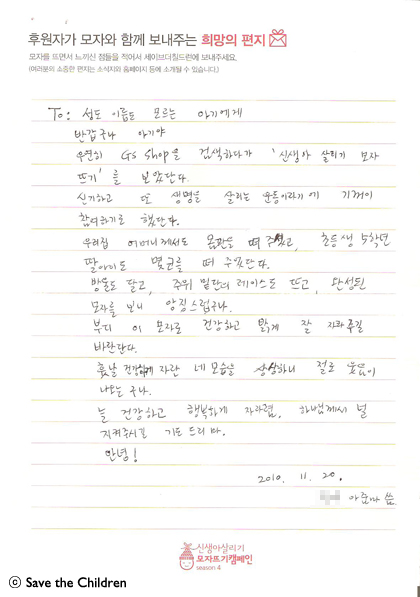 후원자가 모자와 함께 보내주는 희망의 편지
모자를 뜨면서 느끼신 점들을 적어서 세이브더칠드런에 보내주세요.
(여러분의 소중한 편지는 소식지와 홈페이지 등에 소개될 수 있습니다.)
To: 성도 이름도 모르는 아기에게
반갑구나 아기야
우연히 GS Shop을 검색하다가 '신생아 살리기 모자
뜨기'를 보았단다.
신기하고 또 생명을 살리는 운동이라기에 기꺼이
참여하기로 했단다.
우리집 어머니께서도 몸판을 떠 주셨고, 초등생 5학년
딸아이도 몇코를 떠 주었단다.
방울도 달고, 주위 밑단의 레이스도 뜨고, 완성된
모자를 보니 앙징스럽구나.
부디 이 모자로 건강하고 밝게 잘 자라주길
바란단다.
훗날 건강하게 자란 네 모습을 상상하니 절로 웃음이
나오는구나.
늘 건강하고 행복하게 자라렴. 하나님께서 널
지켜주시길 기도 드리마.
안녕!
2010. 11. 20.
아줌마 씀
신생아살리기
모자뜨기캠페인
season 4
ⓒ Save the Children